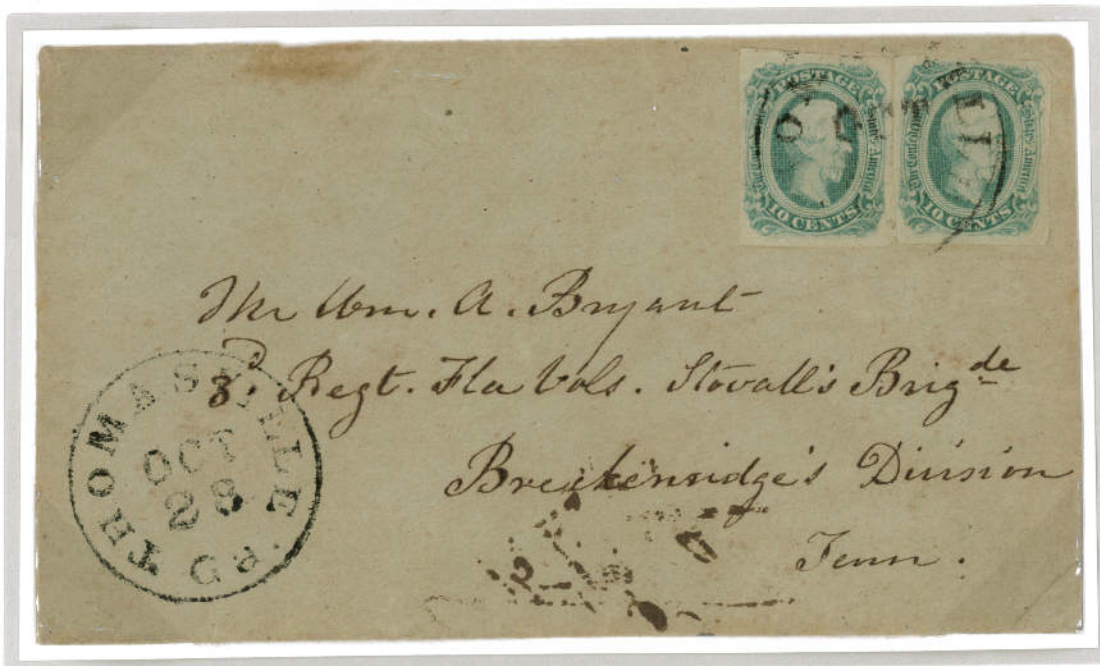 POSTAGE
The Confederate States America
10 CENTS
POSTAGE
The Confederate States America
10 CENTS
OCT
Mr Wm. A. Bryant
3d. Regt. Fla Vols. Stovall's Brigde
Breckenridge's Division
Tenn.
THOMASVILLE Ga.
OCT
28